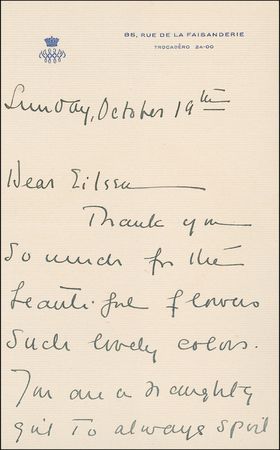 85, RUE DE LA FAISANDERIE
TROCADÉRO 24-00
Sunday, October 19th
Dear Eilssa
Thank you
so much for the
beautiful flowers
such lovely colors.
You are a naughty
girl to always spoil